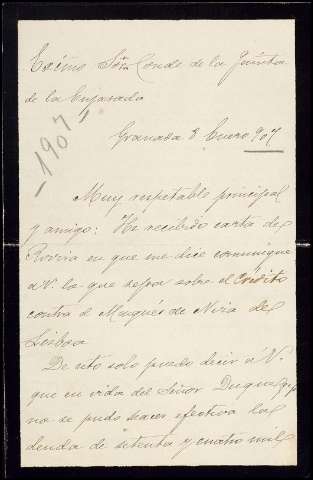 Excmo Sor Conde de la Quinta
de la Enjarada
1907
Granada 8 Enero 907
Muy respetable principal
y amigo: He recibido carta de
en que me dice comunique
a V. lo que sepa sobre el Crédito
contra el Marqués de Nisa de
Lisboa
De esto solo puedo decir a V.
que en vida del Señor Duque
no se pudo hacer efectiva la
deuda de setenta y cuatro mil